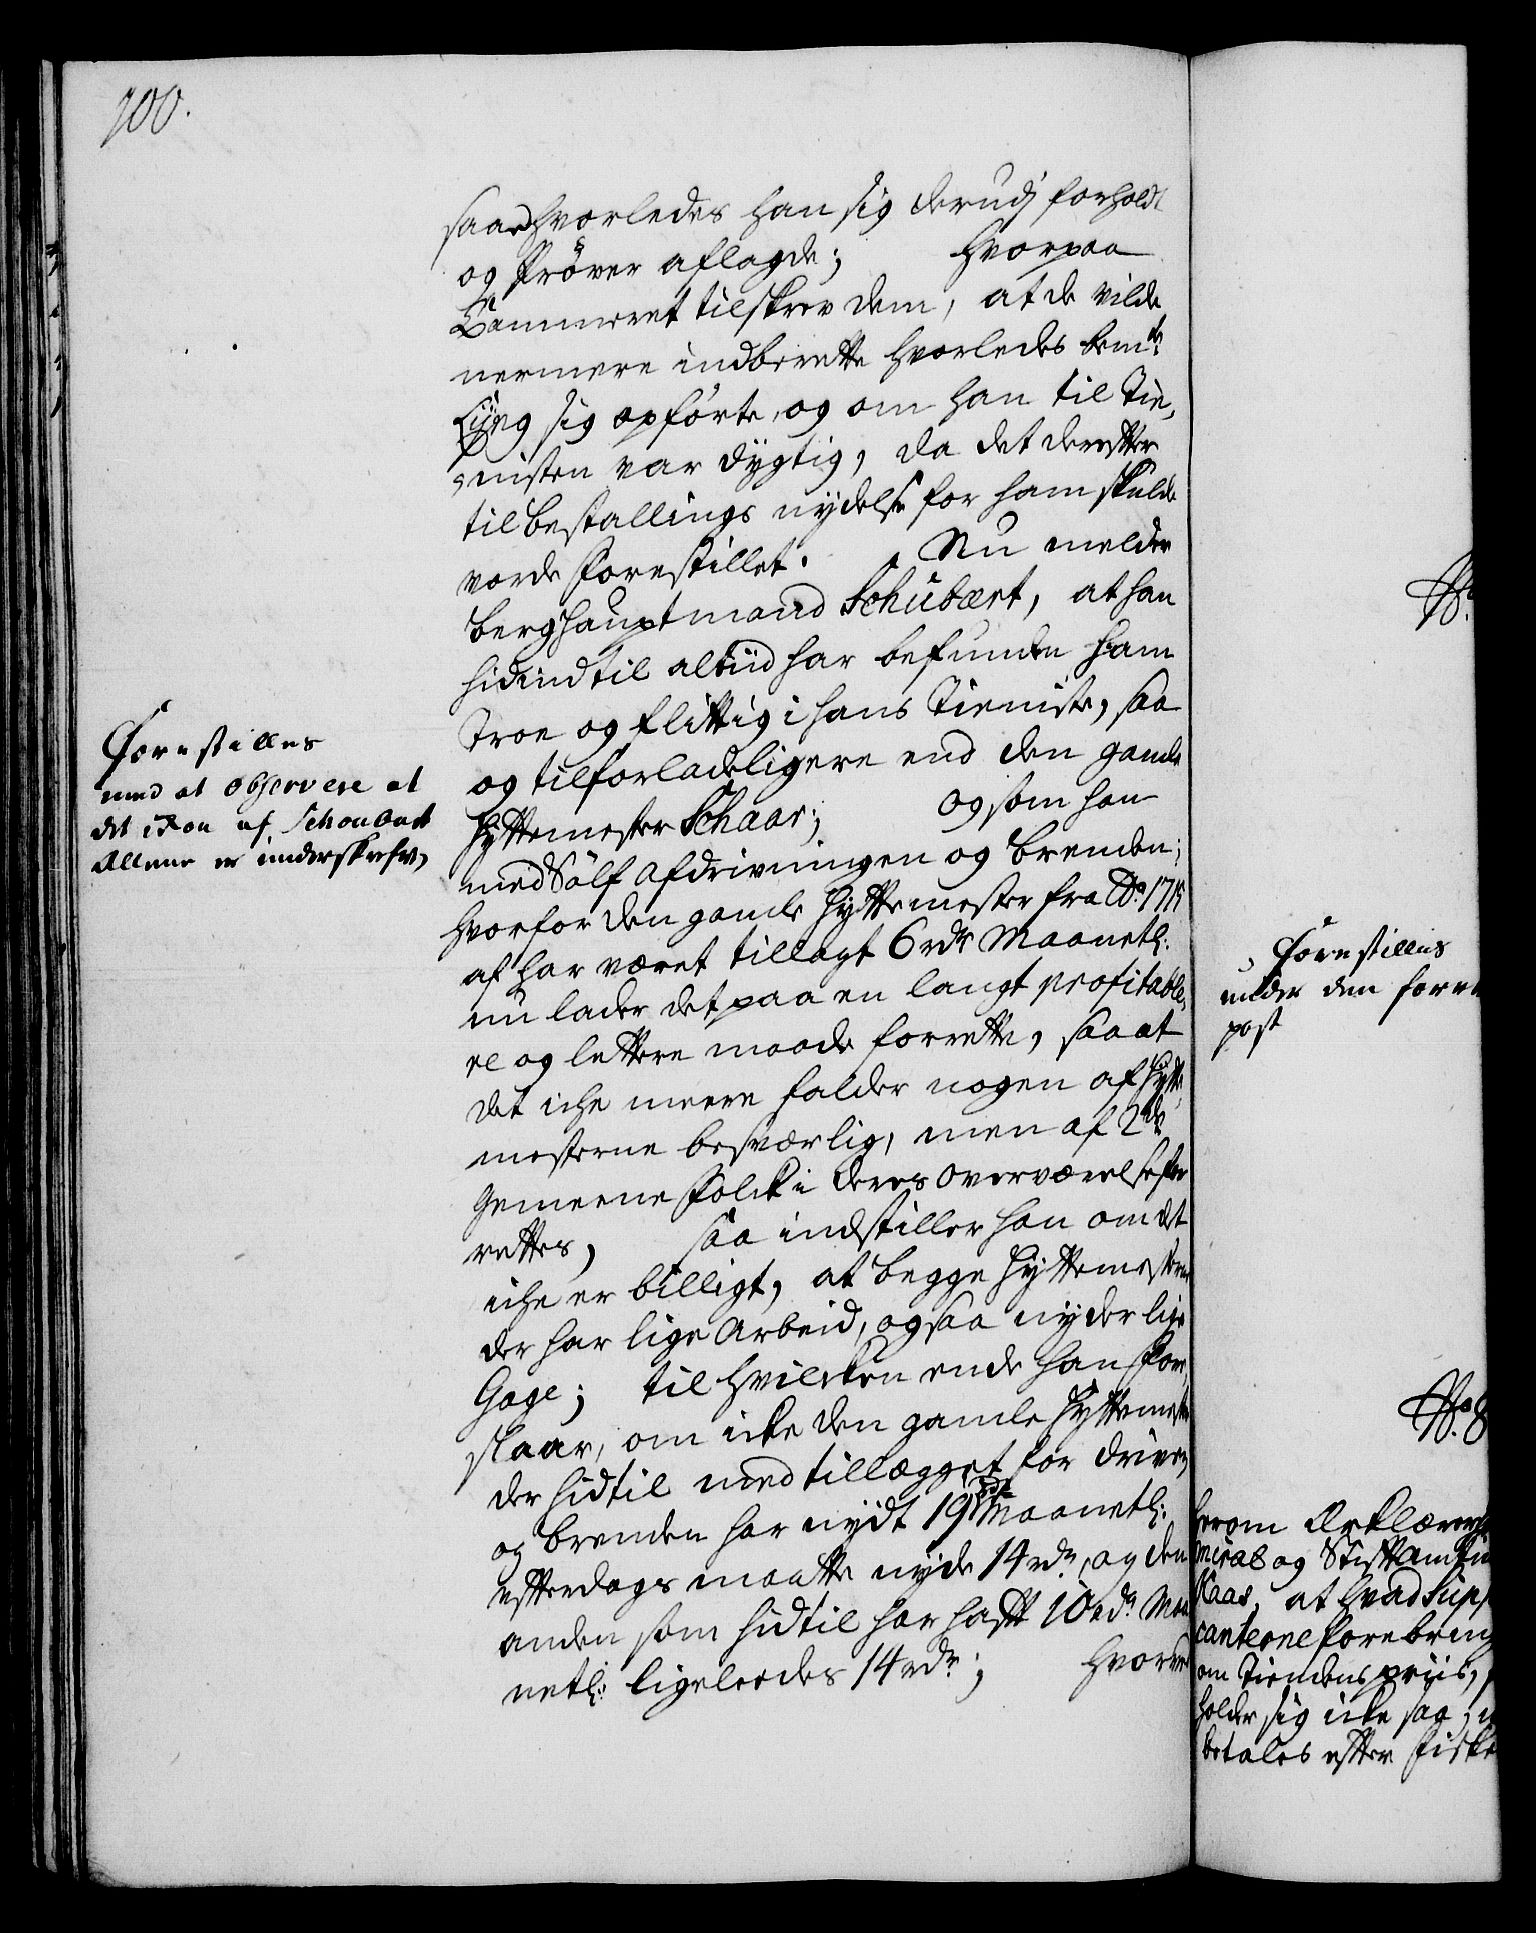 700.
saae hvorledes han sig derudj forholdt
og Prøver aflagde; Hvorpaa
Cammeret tilskrev dem, at de vilde
nermere indberette hvorledes bem.te
Ljng sig opførte, og om han til Tie,
nisten var dygtig, da det derefter
til bestallings nydelse for ham skulde
vorde forestillet. Nu melder
Berghauptmand Schubært, at han
hidindtil altiid har befunden ham
troe og flittig i hans Tieniste, saa
og tilforladeligere end den gamle
Hyttemester Schaar; og som han
med Sølf afdrivningen og brenden;
hvorfor den gamle Hyttemester fra Ao. 1715
af har været tillagt 6 rdr Maanetl:
nu lader det paa en langt profitable,
re og lettere maade forrette, saa at
det iche meere falder nogen af Hytte,
mesterne besværlig, men af 2de
Gemeene Folck i deres overværelse for
rettes, saa indstiller han om det
iche er billigt, at begge Hyttemestere
der har lige Arbeid, ogsaa nyder lige
Gage; til hvilcken ende han fore,
slaar, om icke den gamle Hyttemester
der hidtil med tillægget for driven
og brenden har nydt 19 rdr Maanetl:
efterdags maatte nyde 14 rdr, og den
anden som hidtil har hafft 10 rdr Maa
netl: ligeleedes 14 rdr; Hvorved
Forestilles
med at observere at
det ickon af Schoubart
Allene er underskrefv,
Forestilles
under den forre
post
No. 8
herom Erklærer
miral og Stiftamtm
Kaas, at hvad Supp
canterne forebring
om Tiendens priis,
holder sig icke saa;
betales efter Fiske